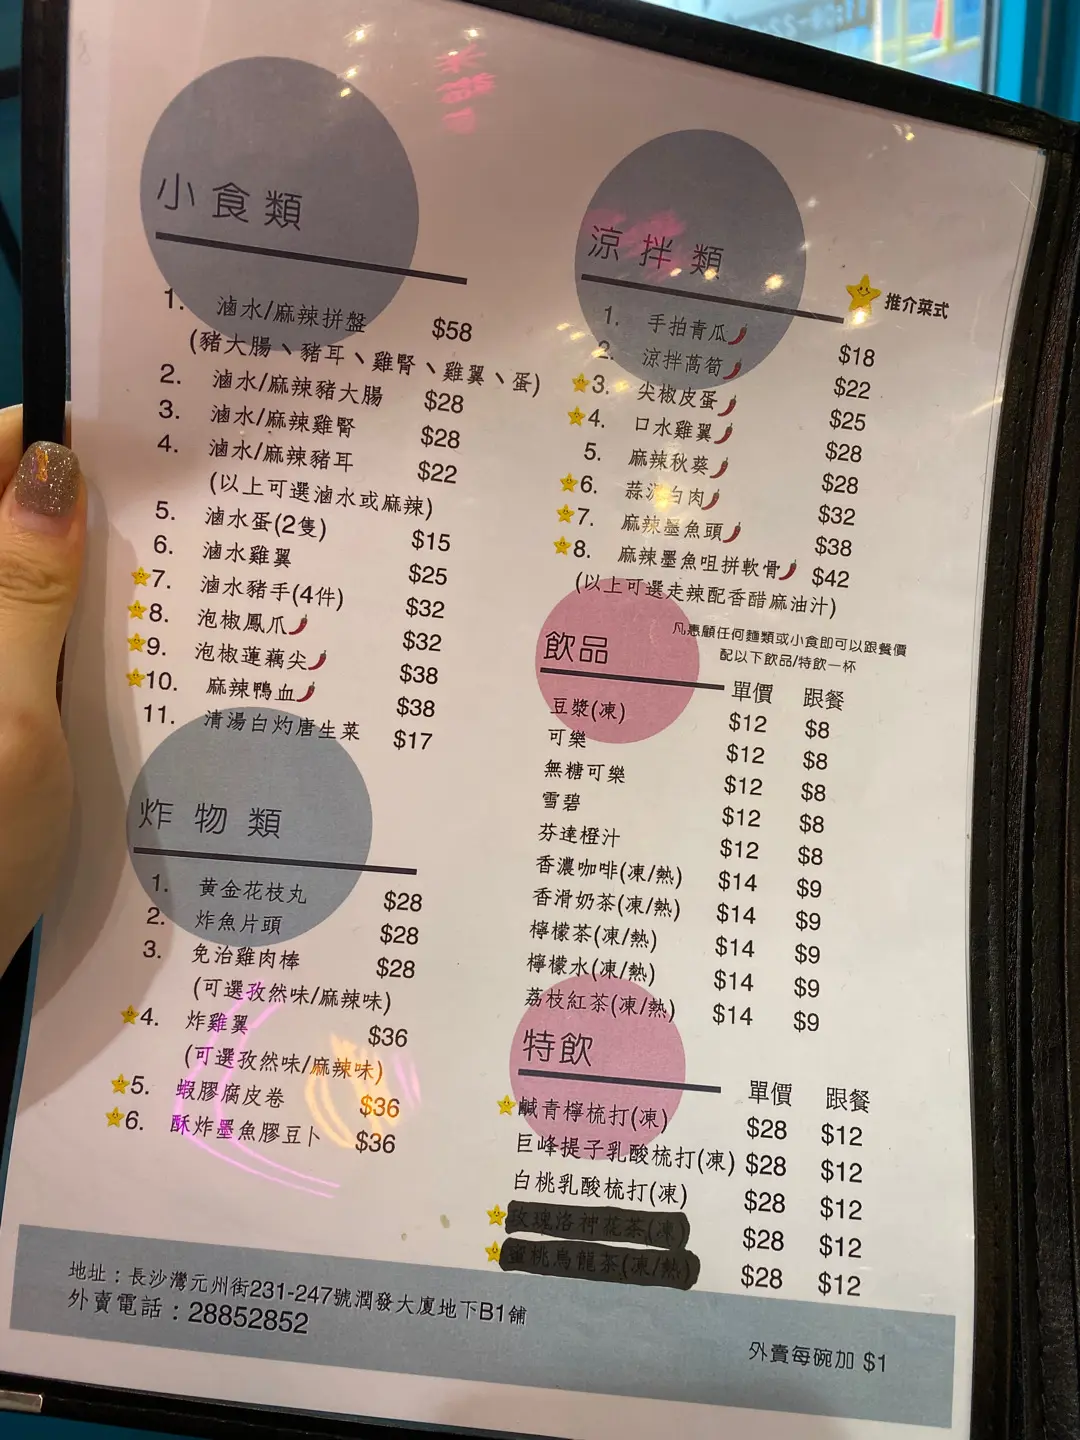 小食類
1. 滷水/麻辣拼盤 $58
(豬大腸、豬耳、雞腎、雞翼、蛋)
2. 滷水/麻辣豬大腸 $28
3. 滷水/麻辣雞腎 $28
4. 滷水/麻辣豬耳 $22
(以上可選滷水或麻辣)
5. 滷水蛋(2隻) $15
6. 滷水雞翼 $25
7. 滷水豬手(4件) $32
8. 泡椒鳳爪 $32
9. 泡椒蓮藕尖 $38
10. 麻辣鴨血 $38
11. 清湯白灼唐生菜 $17
炸物類
1. 黃金花枝丸 $28
2. 炸魚片頭 $28
3. 免治雞肉棒 $28
(可選孜然味/麻辣味)
4. 炸雞翼 $36
(可選孜然味/麻辣味)
5. 蝦膠腐皮卷 $36
6. 酥炸墨魚膠豆卜 $36
涼拌類
推介菜式
1. 手拍青瓜 $18
2. 涼拌萵筍 $22
3. 尖椒皮蛋 $25
4. 口水雞翼 $28
5. 麻辣秋葵 $28
6. 蒜泥白肉 $32
7. 麻辣墨魚頭 $38
8. 麻辣墨魚咀拼軟骨 $42
(以上可選走辣配香醋麻油汁)
飲品
凡惠顧任何麵類或小食即可以跟餐價
配以下飲品/特飲一杯
單價 跟餐
豆漿(凍) $12 $8
可樂 $12 $8
無糖可樂 $12 $8
雪碧 $12 $8
芬達橙汁 $12 $8
香濃咖啡(凍/熱) $14 $9
香滑奶茶(凍/熱) $14 $9
檸檬茶(凍/熱) $14 $9
檸檬水(凍/熱) $14 $9
荔枝紅茶(凍/熱) $14 $9
特飲
單價 跟餐
鹹青檸梳打(凍) $28 $12
巨峰提子乳酸梳打(凍) $28 $12
白桃乳酸梳打(凍) $28 $12
玫瑰洛神花茶(凍) $28 $12
蜜桃烏龍茶(凍/熱) $28 $12
地址：長沙灣元州街231-247號潤發大廈地下B1舖
外賣電話：28852852
外賣每碗加 $1